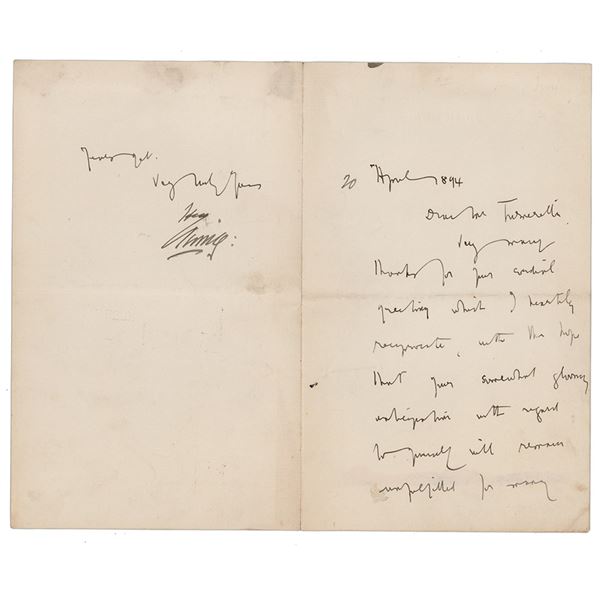 20 April 1894
Dear Mr Turnerelli
Very many
thanks for your cordial
greeting which I heartily
reciprocate, with the hope
that your somewhat gloomy
anticipation with regard
to yourself will remain
unfulfilled for many
years yet.
Very truly yours
Henry
Irving